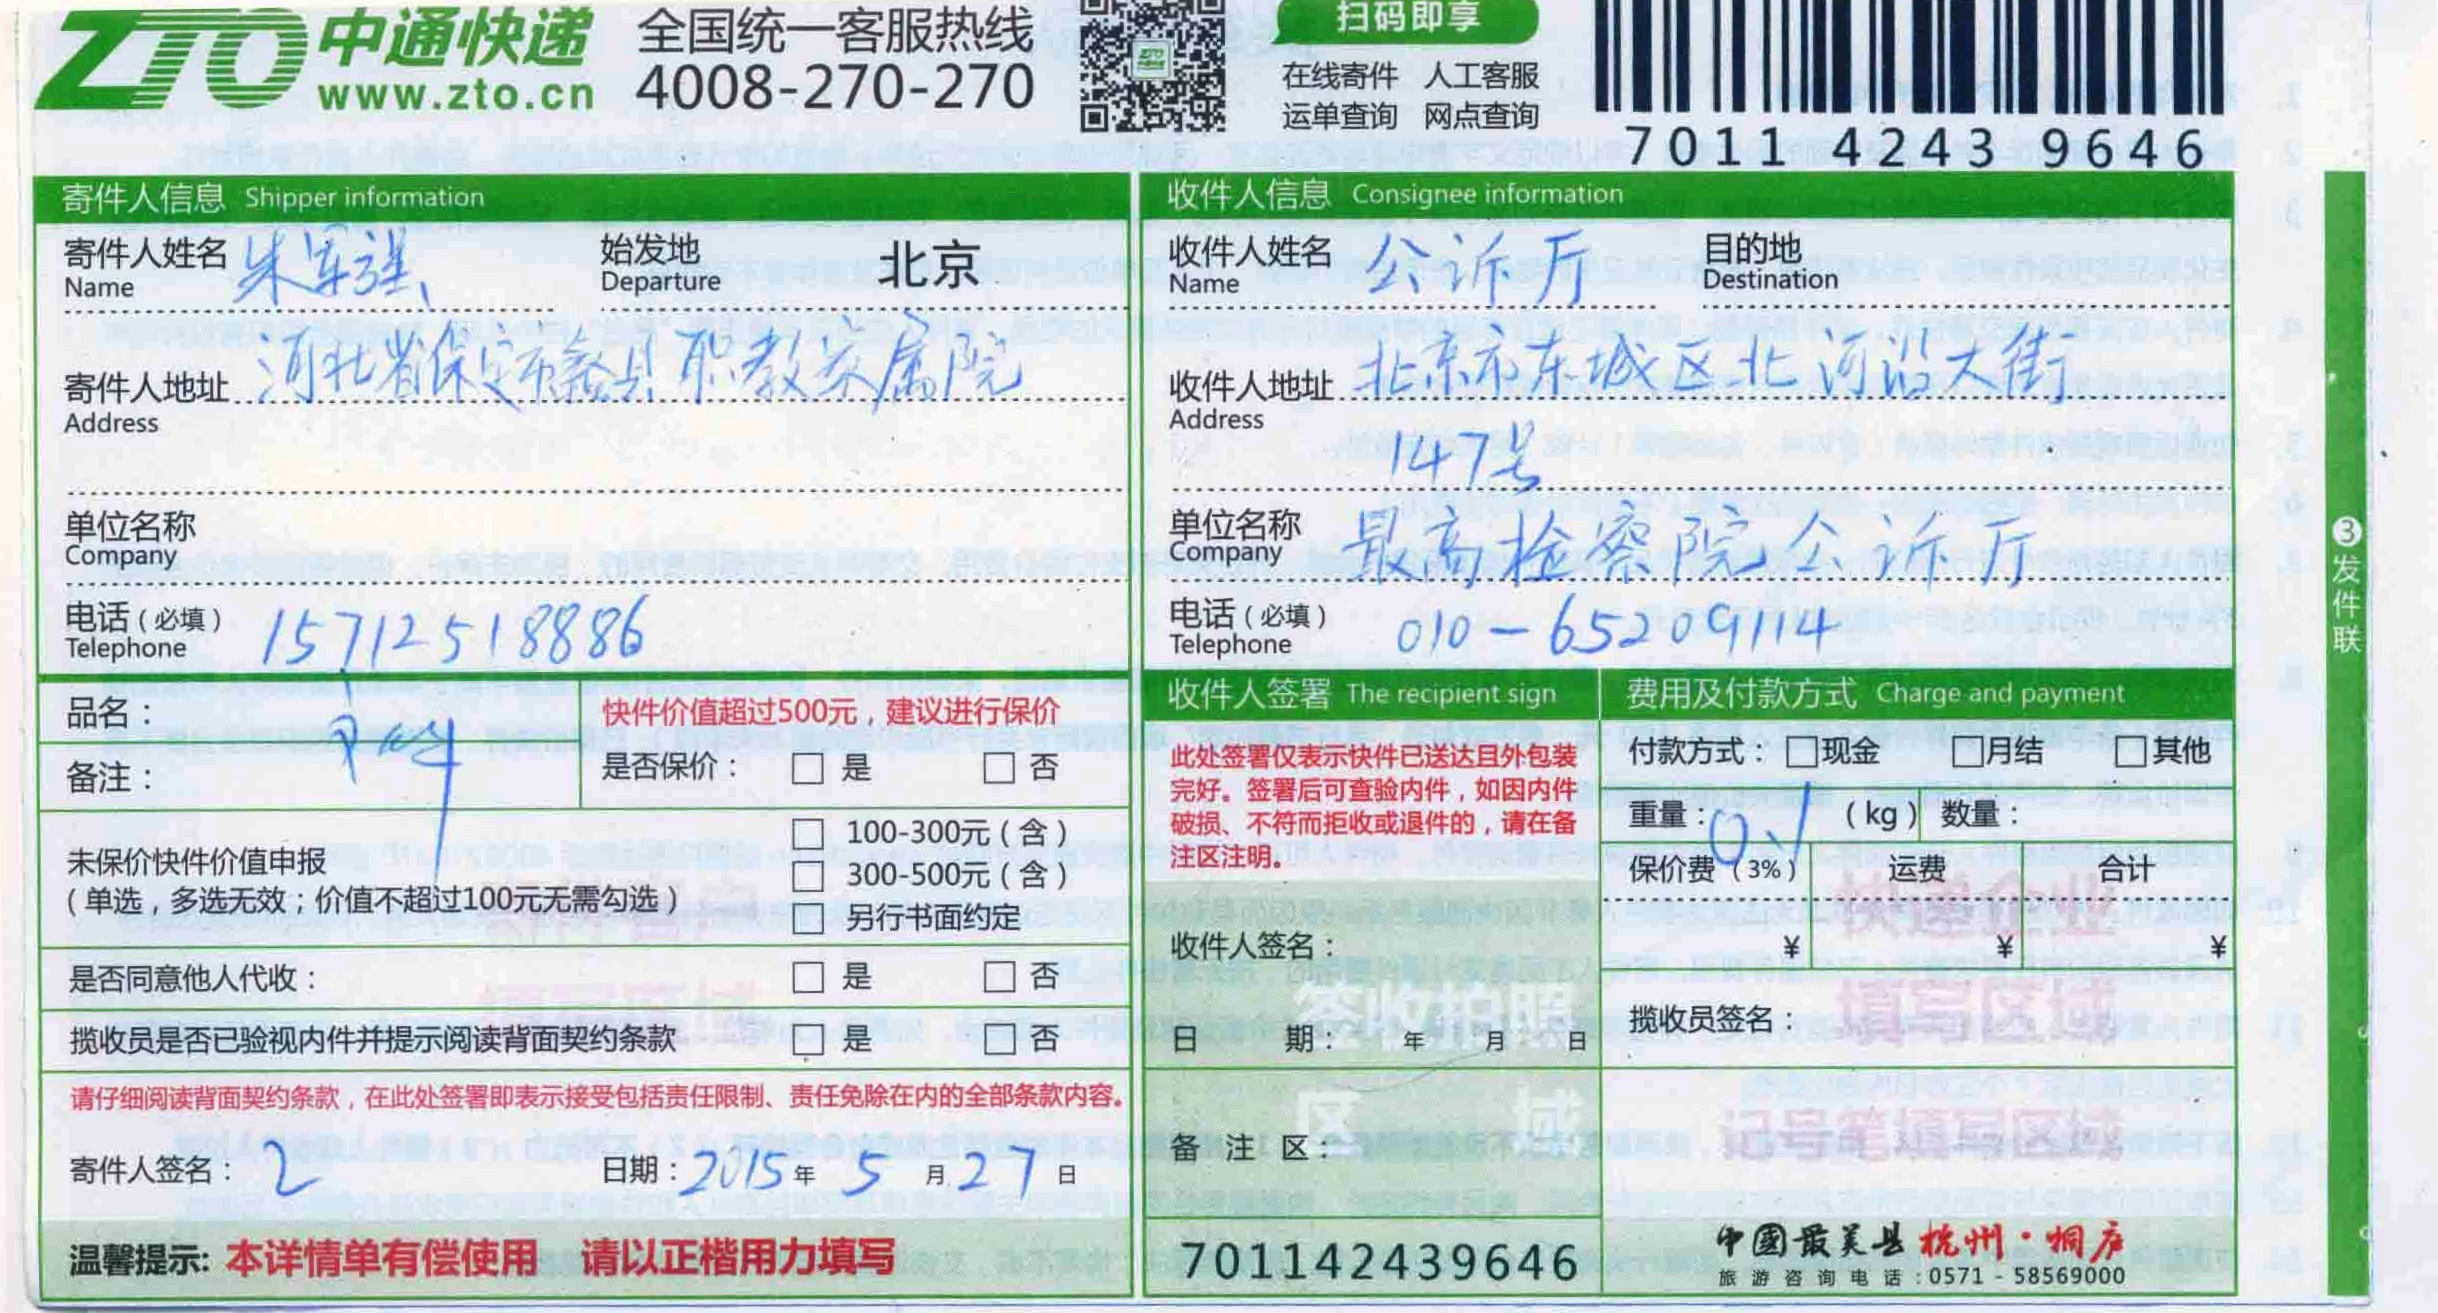 ZTO 中通快递
www.zto.cn
全国统一客服热线
4008-270-270
扫码即享
在线寄件 人工客服
运单查询 网点查询
7011 4243 9646
寄件人信息 Shipper information
寄件人姓名 朱军强 始发地 北京
Name Departure
河北省保定市蠡县职教家属院
寄件人地址
Address
单位名称
Company
电话（必填） 15712518886
Telephone
收件人信息 Consignee information
收件人姓名 公诉厅 目的地
Name Destination
收件人地址 北京市东城区北河沿大街
Address
147号
单位名称 最高检察院公诉厅
Company
电话（必填） 010-65209114
Telephone
品名：
备注：
快件价值超过500元，建议进行保价
是否保价： 是 否
未保价快件价值申报
（单选，多选无效；价值不超过100元无需勾选）
100-300元（含）
300-500元（含）
另行书面约定
是否同意他人代收： 是 否
揽收员是否已验视内件并提示阅读背面契约条款 是 否
请仔细阅读背面契约条款，在此处签署即表示接受包括责任限制、责任免除在内的全部条款内容。
寄件人签名： 2 日期：2015年 5 月 27 日
温馨提示: 本详情单有偿使用 请以正楷用力填写
收件人签署 The recipient sign
此处签署仅表示快件已送达且外包装
完好。签署后可查验内件，如因内件
破损、不符而拒收或退件的，请在备
注区注明。
收件人签名：
签收拍照
日 期： 年 月 日
区 域
备 注 区：
701142439646
费用及付款方式 Charge and payment
付款方式： 现金 月结 其他
重量：0.1 （kg） 数量：
保价费（3%） 运费 合计
¥ ¥ ¥
揽收员签名：
中國最美县 杭州·桐庐
旅游咨询电话:0571-58569000
③发件联